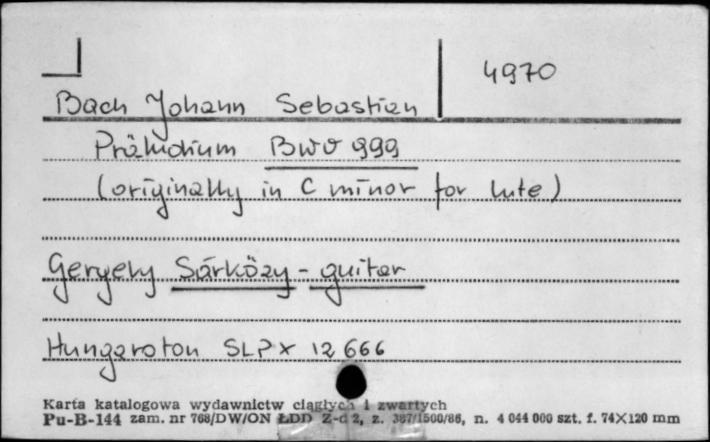 4970
Bach Johann Sebastian
Präludium BWV 999
(originally in C minor for lute)
Gergely Sárközy - guitar
Hungaroton SLPX 12 666
Karta katalogowa wydawnictw ciągłych i zwartych
Pu-B-144 zam. nr 768/DW/ON ŁDD Z-d 2, z. 387/1500/86, n. 4 044 000 szt. f. 74×120 mm